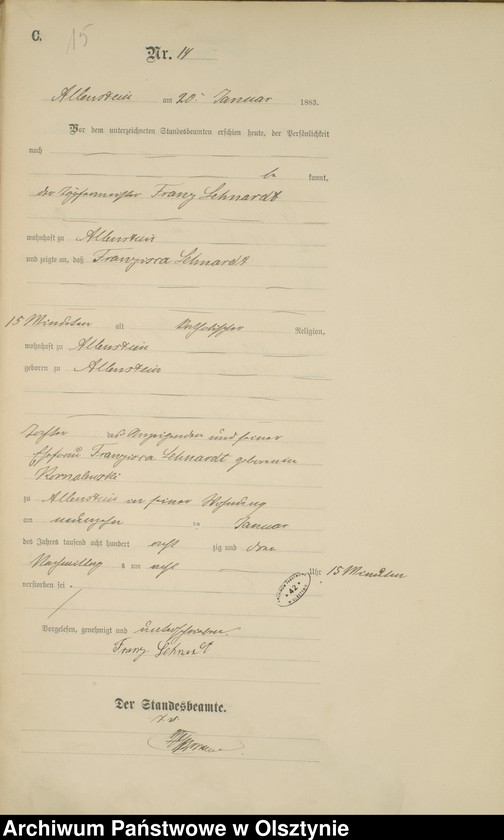 C. 15
Nr. 14
Allenstein am 20. Januar 1883.
Vor dem unterzeichneten Standesbeamten erschien heute, der Persönlichkeit
nach
be kannt,
der Töpfermeister Franz Lehnardt
wohnhaft zu Allenstein
und zeigte an, daß Franzisca Lehnardt
15 Minuten alt katholischer Religion,
wohnhaft zu Allenstein
geboren zu Allenstein
Tochter des Anzeigenden und seiner
Ehefrau Franzisca Lehnardt geborenen
Kornalewski
zu Allenstein in seiner Wohnung
am neunzehn ten Januar
des Jahres tausend acht hundert acht zig und drei
Nachmittag s um acht Uhr 15 Minuten
verstorben sei.
Vorgelesen, genehmigt und unterschrieben
Franz Lehnardt
Der Standesbeamte.
42
Archiwum Państwowe w Olsztynie